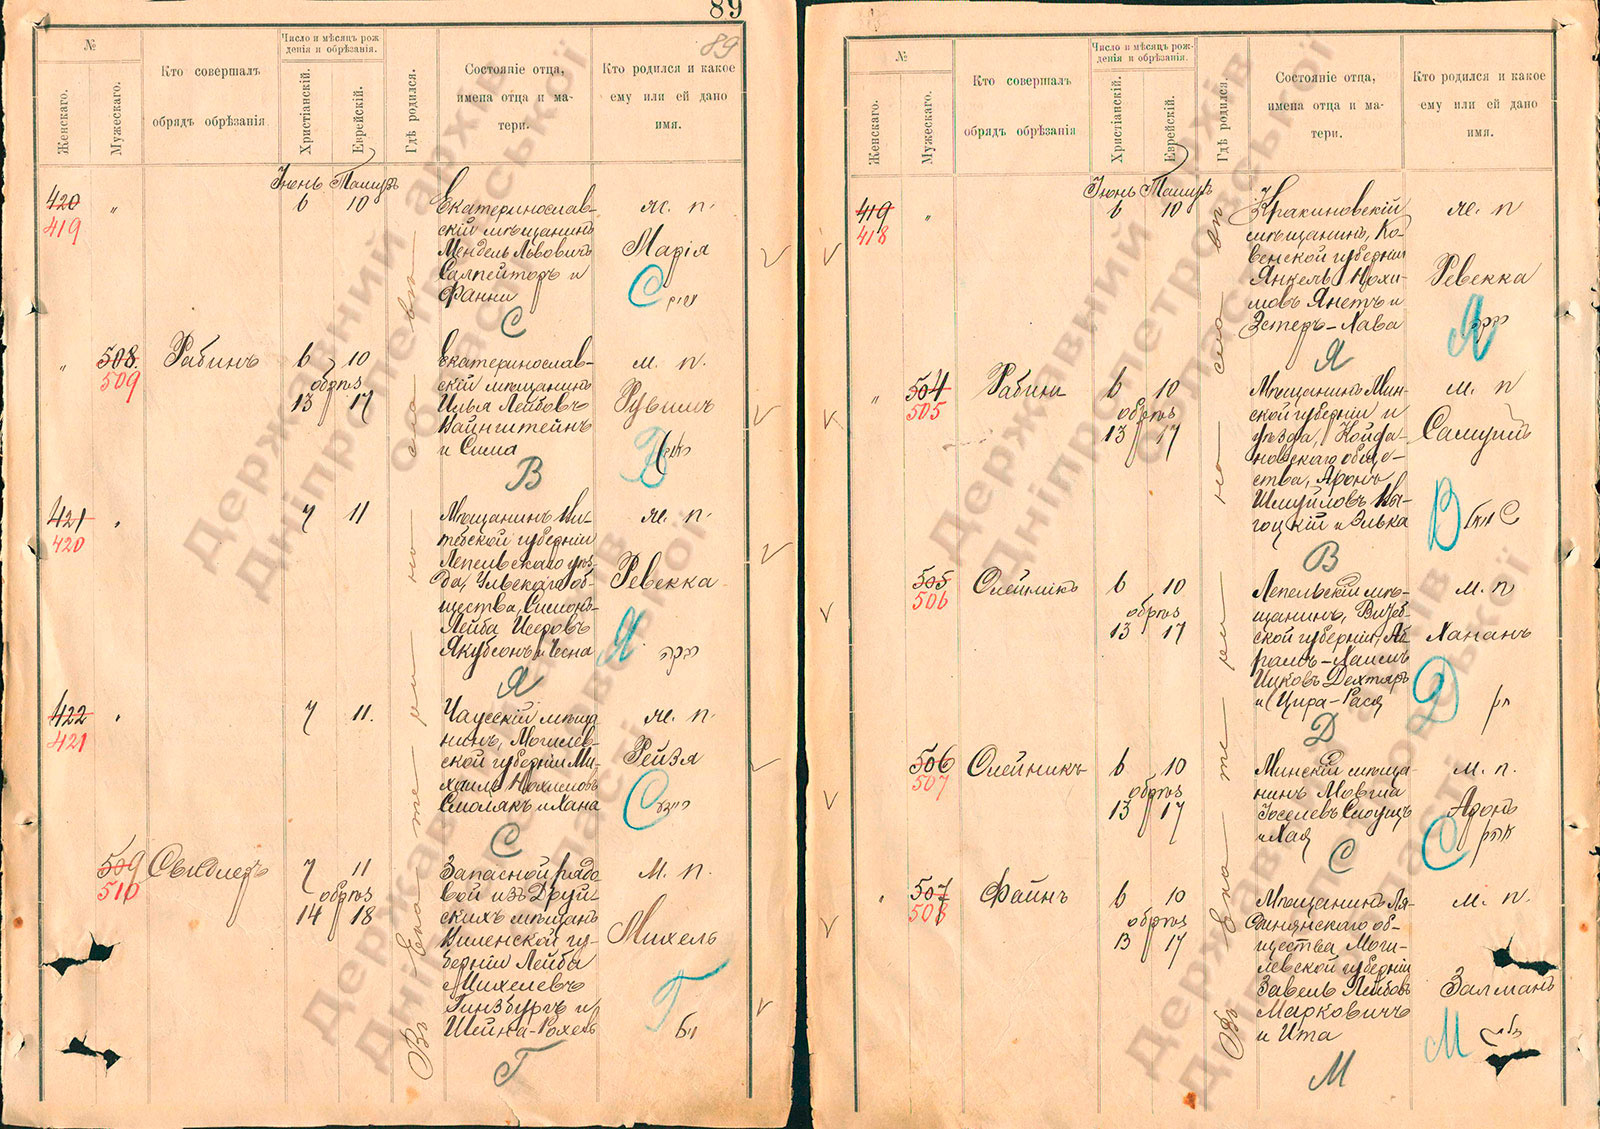 89
89
№
Женскаго.
Мужескаго.
Кто совершалъ
обрядъ обрѣзанія
Число и мѣсяцъ рож
денія и обрѣзанія.
Христіанскій.
Еврейскій.
Гдѣ родился.
Состояніе отца,
имена отца и ма-
тери.
Кто родился и какое
ему или ей дано
имя.
Іюнь Тамузъ
420
419
"
6 10
Екатеринослав-
скій мѣщанинъ
Мендель Львовичъ
Салпейторъ и
Фанни
С
ж. п.
Марія
С
"
508.
509
Рабинъ
6 10
обрѣз
13 17
Екатеринослав-
скій мѣщанинъ
Илья Лейбовъ
Вайнштейнъ
и Сима
В
м. п.
Рувимъ
В
421
420
"
7 11
Мѣщанинъ Ви-
тебской губерніи
Лепельскаго уѣз-
да, Ульскаго об-
щества, Симонъ-
Лейба Исеровъ
Якубсонъ и Чесна
Я
ж. п.
Ревекка
Я
רבקה
422
421
"
7 11.
Чаусскій мѣща-
нинъ, Могилев-
ской губерніи Ми-
хаилъ Нохимовъ
Смолякъ и Хана
С
ж. п.
Рейзя
С
509
510
7 11
обрѣз
14 18
Запасной рядо
вой изъ Друй-
скихъ мѣщанъ
Виленской гу-
берніи Лейба
Михелевъ
Гинзбургъ и
Шейна-Рохель
Г
м. п.
Михель
Г
Въ Екатеринославѣ
№
Женскаго.
Мужескаго.
Кто совершалъ
обрядъ обрѣзанія
Число и мѣсяцъ рож-
денія и обрѣзанія.
Христіанскій.
Еврейскій.
Гдѣ родился.
Состояніе отца,
имена отца и ма-
тери.
Кто родился и какое
ему или ей дано
имя.
Іюнь Тамузъ
419
418
"
6 10
Кракиновскій
мѣщанинъ, Ко-
венской губерніи
Янкель Нохи-
мовъ Янетъ и
Эстеръ-Хава
Я
ж. п
Ревекка
Я
רבקה
"
504
505
Рабинъ
6 10
обрѣз
13 17
Мѣщанинъ Мин-
ской губерніи и
уѣзда, Койда-
новскаго обще-
ства, Аронъ
Шмуйловъ Вы-
гоцкій и Элька
В
м. п
Самуилъ
В
505
506
Олейникъ
6 10
обрѣз
13 17
Лепельскій мѣ-
щанинъ, Витеб
ской губерніи, Аб
рамъ-Хаимъ
Ицковъ Дехтяръ
и Цира-Рася
Д
м. п
Хананъ
Д
חנן
506
507
Олейникъ
6 10
обрѣз
13 17
Минскій мѣща-
нинъ Мовша
Іоселевъ Слуцкъ
и Хая
С
м. п.
Аронъ
С
אהרן
"
507
508
Файнъ
6 10
обрѣз
13 17
Мѣщанинъ Ля-
общества Моги-
левской губерніи
Завель Лейбовъ
Марковичъ
и Ита
М
м. п.
Залманъ
М
זלמן
Въ Екатеринославѣ
Державний архів
Дніпропетровської
області